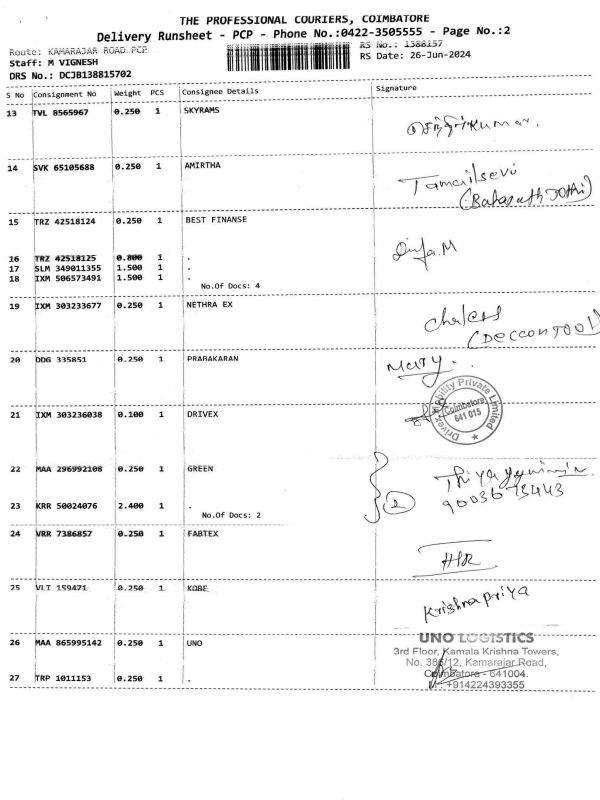 THE PROFESSIONAL COURIERS, COIMBATORE
Delivery Runsheet - PCP - Phone No.:0422-3505555 - Page No.:2
Route: KAMARAJAR ROAD PCP RS No.: 1388157
Staff: M VIGNESH RS Date: 26-Jun-2024
DRS No.: DCJB138815702
S No Consignment No Weight PCS Consignee Details Signature
13 TVL 8565967 0.250 1 SKYRAMS
14 SVK 65105688 0.250 1 AMIRTHA
15 TRZ 42518124 0.250 1 BEST FINANSE
16 TRZ 42518125 0.800 1 .
17 SLM 349011355 1.500 1 .
18 IXM 506573491 1.500 1 .
No.Of Docs: 4
19 IXM 303233677 0.250 1 NETHRA EX
(DECCON TOOL)
20 DDG 335851 0.250 1 PRABAKARAN Mary.
21 IXM 303236038 0.100 1 DRIVEX
Drivex Mobility Private Limited
Coimbatore
641 015
22 MAA 296992108 0.250 1 GREEN
23 KRR 50024076 2.400 1 . 2
No.Of Docs: 2
24 VRR 7386857 0.250 1 FABTEX
HR
25 VLT 159471 0.250 1 KOBE Krishna priya
26 MAA 865995142 0.250 1 UNO
UNO LOGISTICS
3rd Floor, Kamala Krishna Towers,
Kamarajar Road,
Coimbatore - 641004.
+914224393355
27 TRP 1011153 0.250 1 .